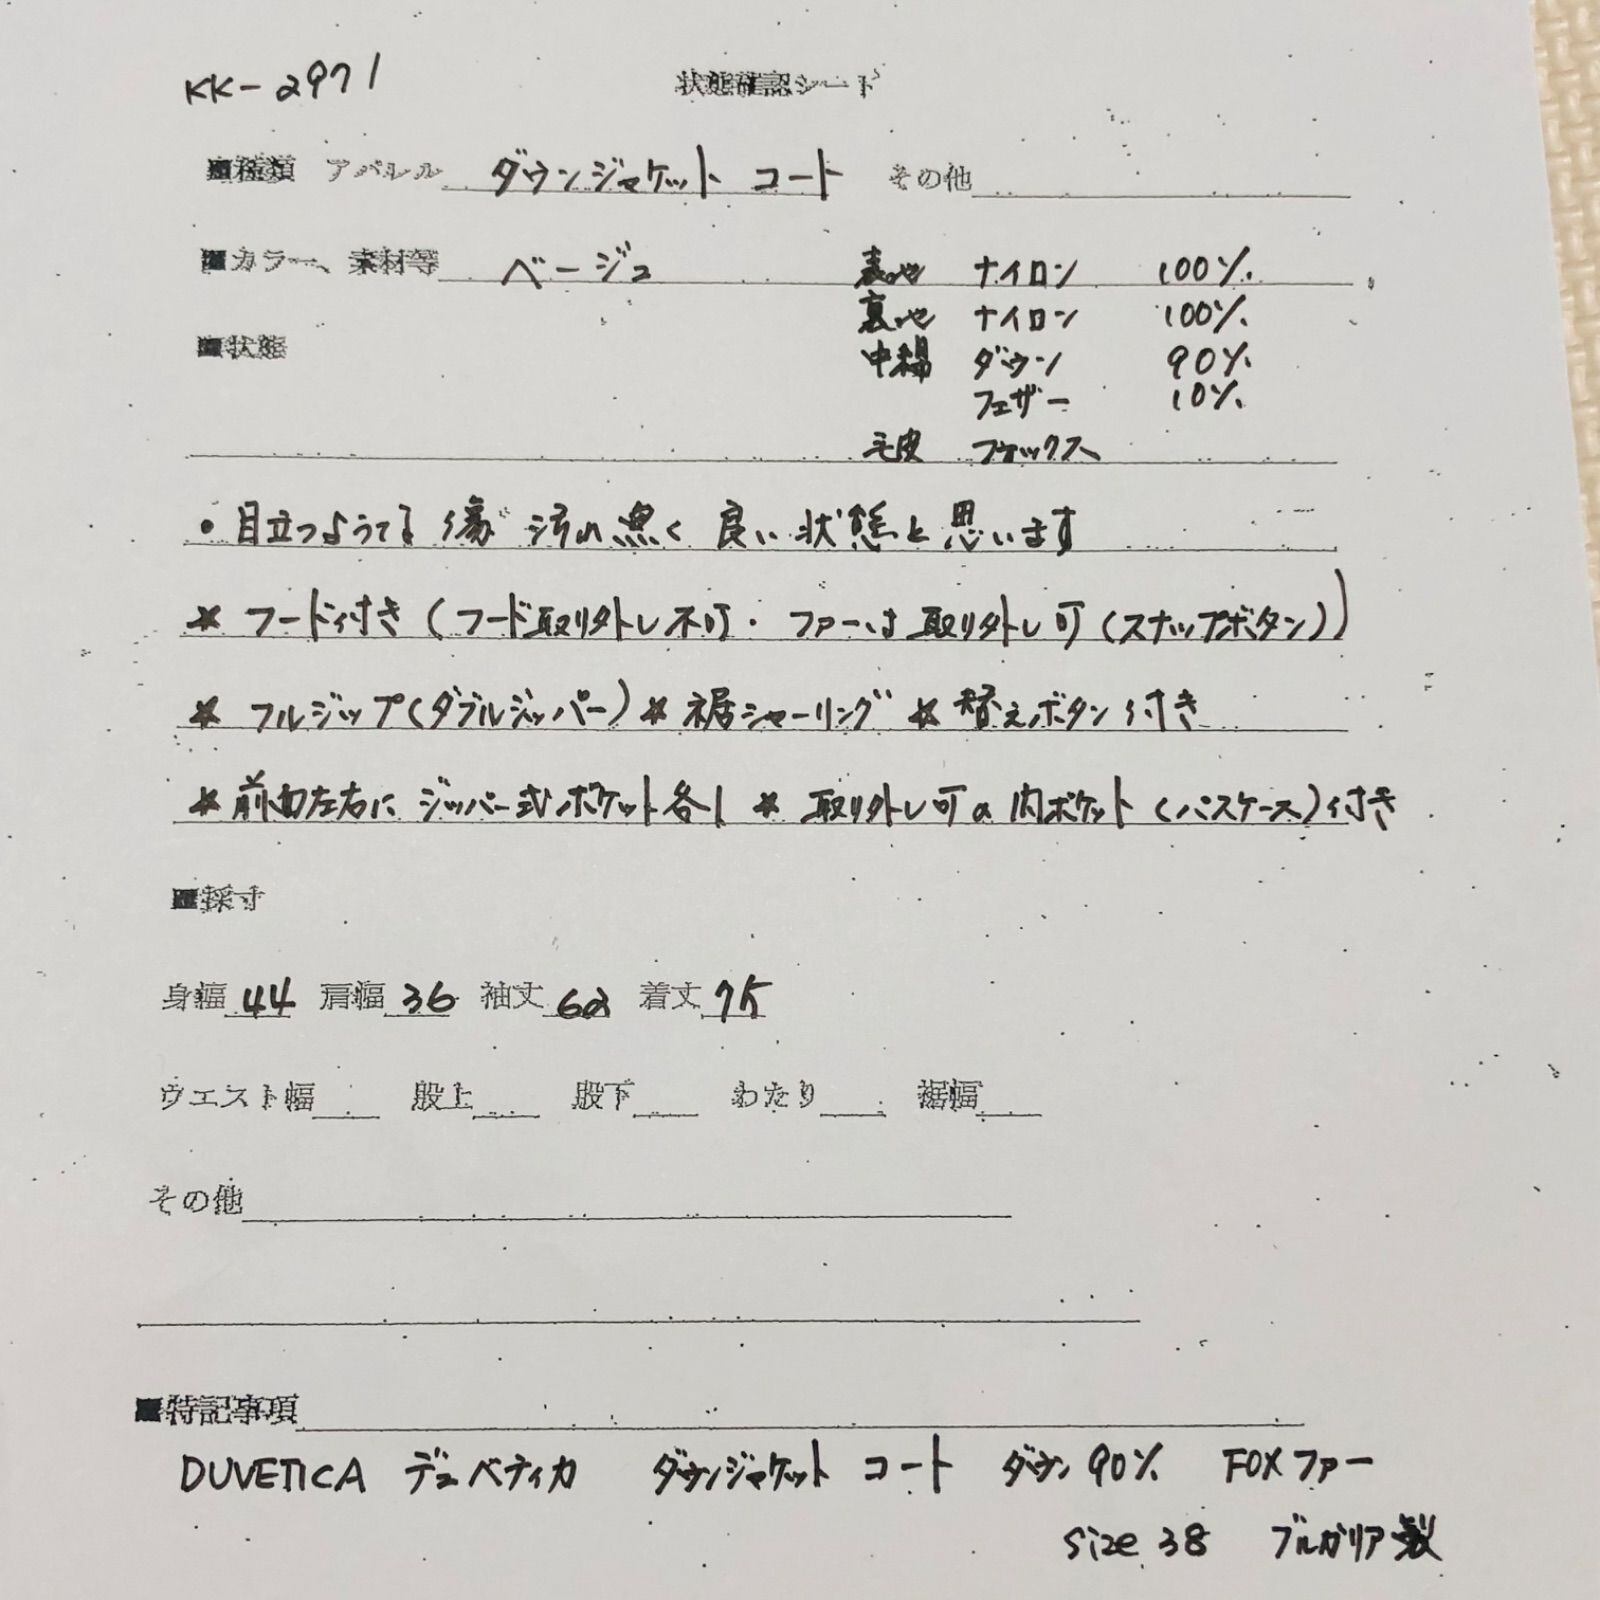 KK-2971 状態確認シート
■種類 アパレル ダウンジャケット コート その他
■カラー、素材等 ベージュ 表地 ナイロン 100%
裏地 ナイロン 100%
■状態 中綿 ダウン 90%
フェザー 10%
毛皮 フォックス
・目立つような傷 汚れ無く 良い状態と思います
* フード付き(フード取り外し不可・ファーは取り外し可(スナップボタン))
* フルジップ(ダブルジッパー) * 裾シャーリング * 替えボタン付き
* 前面左右に ジッパー式ポケット各1 * 取り外し可の内ポケット(パスケース)付き
■採寸
身幅 44 肩幅 36 袖丈 62 着丈 75
ウエスト幅 股上 股下 わたり 裾幅
その他
■特記事項
DUVETICA デュベティカ ダウンジャケット コート ダウン90% FOXファー
size 38 ブルガリア製